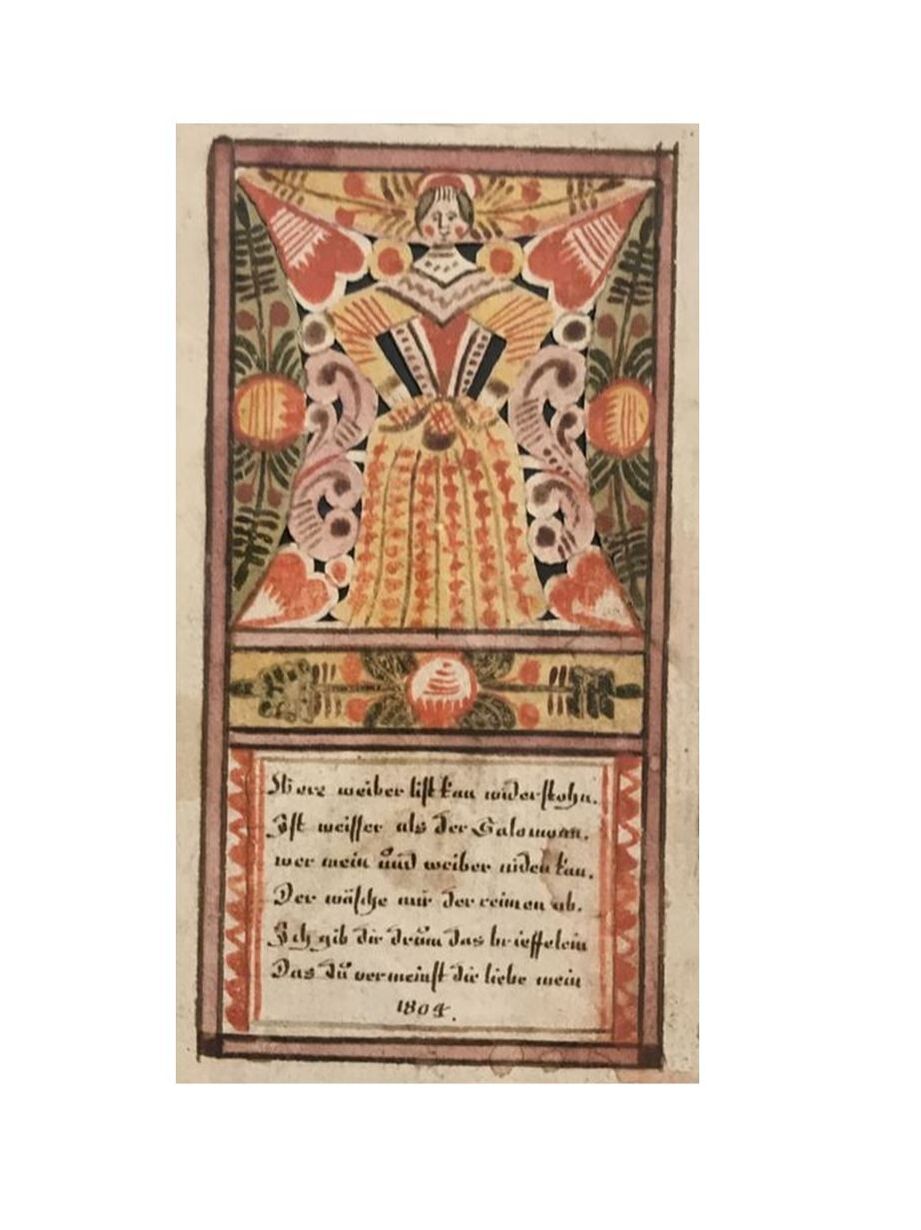 Werz weiber list kan widerstohn.
Ist weisser als der Salomonn.
wer mein und weiber niden kan.
Der wäsche mir der reimen ab.
Ich gib dir drům das brieffelein
Das dů vermeinst die liebe mein
1804.